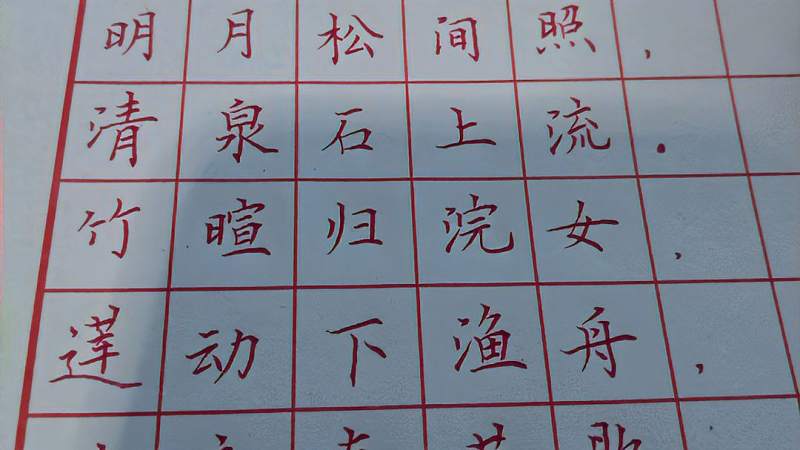 明月松间照，
清泉石上流.
竹暄归浣女，
莲动下渔舟，